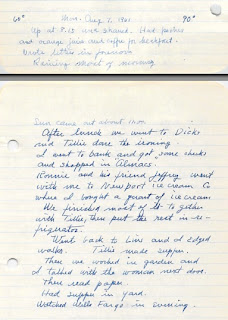 60° Mon. Aug 7, 1961 90°
Up at 8:15 and shaved. Had peaches
and orange juice and coffee for breakfast.
Wrote letters in
Raining most of morning
Sun came out about noon
After lunch we went to Dicks
and Tillie done the ironing
I went to bank and got some checks
and shopped in Almacs.
Ronnie and his friend Jeffrey went
with me to Newport ice cream Co
where I bought a quart of ice cream
We finished most of it to gether
with Tillie, then put the rest in re-
frigerator.
Went back to Lins and I edged
walks. Tillie made supper.
Then we worked in garden and
I talked with the woman next door.
Then read paper
Had supper in yard.
Watched Wells Fargo in evening.